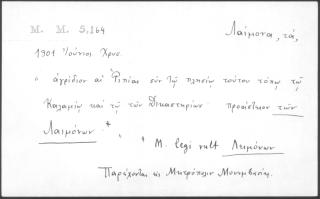 Λαίμονα, τά,
M. M. 5,164
1301 Ἰούνιος Χρυσ.
" ἀγρίδιον αἱ Ῥιπίαι σὺν τῷ πλησίῳ τούτου τόπῳ τῷ
Καλαμίῳ καὶ τῷ τῶν Δικαστηρίων προάστειον τῶν
Λαιμόνων. *
* M. legi vult Λειμόνων
Παρέχονται εἰς Μητρόπολιν Μονεμβασίας.